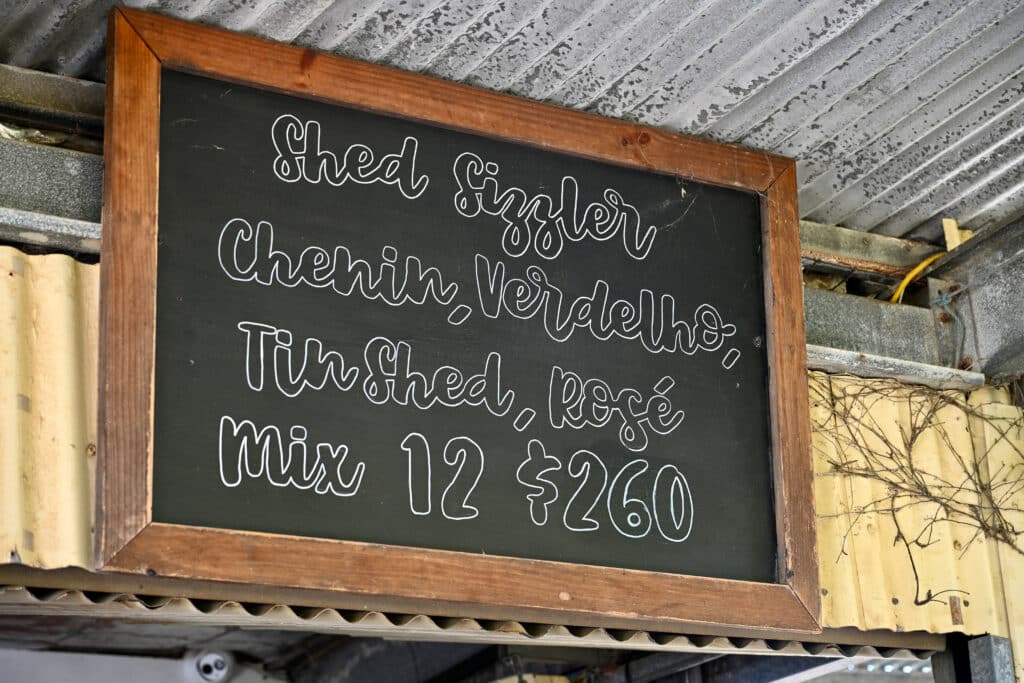 Shed Sizzler
Chenin, Verdelho,
Tin Shed, Rosé
Mix 12 $260